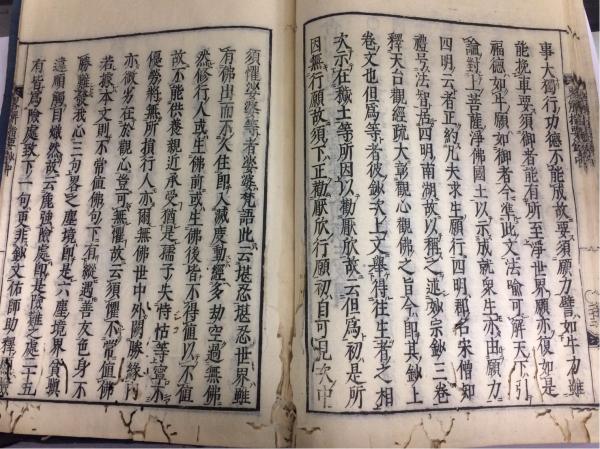 事大獨行功德不能成故要須願力譬如牛力雖
能挽車要須御者能有所至淨世界願亦復如是
福德如牛願如御者今準此文法喻可解天下引
論對上菩薩淨佛國土以示成就衆生亦由願力
四明云者正約凡夫求生願行四明郡名宋僧知
禮号法智居四明南湖故以稱之述妙宗鈔三卷
釋天台觀經疏大彰心觀佛之旨今即其鈔上
卷文也但爲等者彼鈔次上文舉得往生者之相
次示在穢土等所因以勸厭欣故云但爲初是所
因無行願故須下正勸厭欣行願初自可見次中
須懼娑婆等者娑婆梵語此云堪忍堪忍世界雖
有佛出而不久住即入滅度動經多劫空過無佛
然修行人或生佛前或生佛後皆不得值以不值
故不能供養親近承受猶是孺子失恃怙等寧不
優勞將無所損行人亦爾無佛世中外闕勝緣内
亦微劣在於觀心豈可無懼故云須懼不常值佛
若據本文則不常值佛句下有縱遇善友色身不
勝難發我心三句畧之塵境即是六塵境界資與
違順觸目熾然故云麁強險處即是險難之處二十五
有皆爲險處致下一句更非鈔文佑師助釋